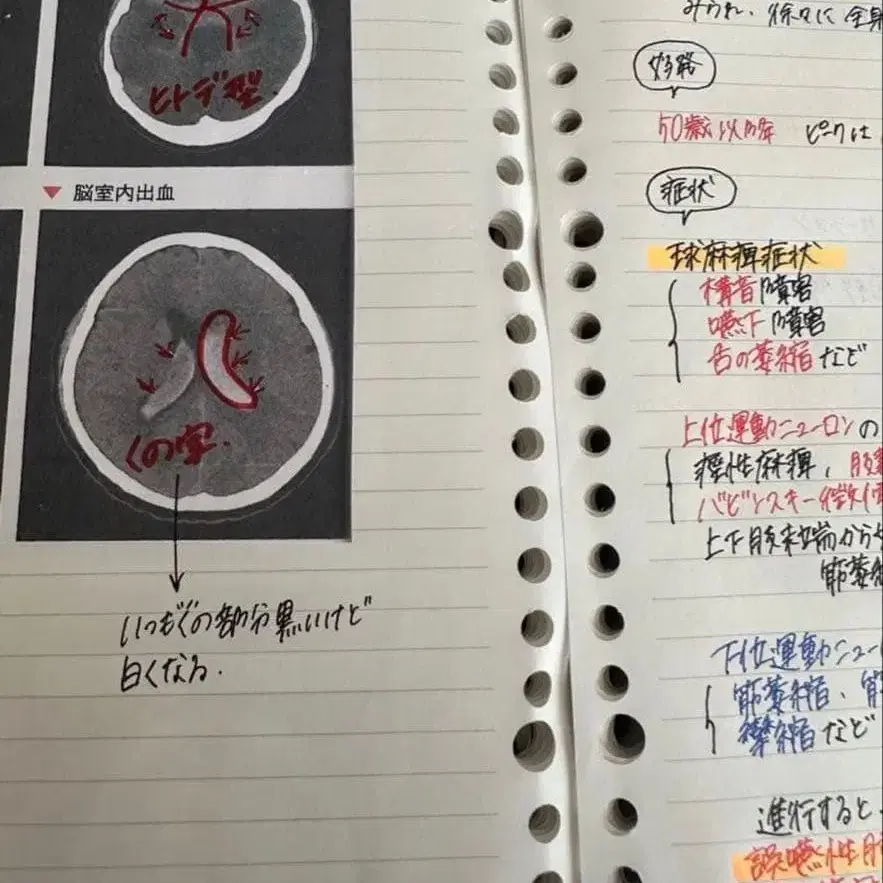 ヒトデ型.
▼ 脳室内出血
くの字.
いつもくの部分黒いけど
白くなる.
みられ、徐々に全身
好発
50歳以降 ピークは
症状
球麻痺症状
構音障害
嚥下障害
舌の萎縮など
上位運動ニューロンの
痙性麻痺、
バビンスキー徴候
上下肢末端から
筋萎
下位運動ニュー
筋萎縮、筋
攣縮など
進行すると、
誤嚥性肺